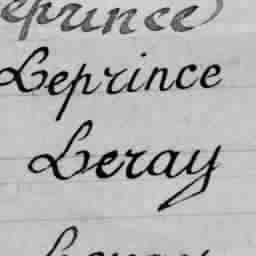 eprince
Leprince
Leray